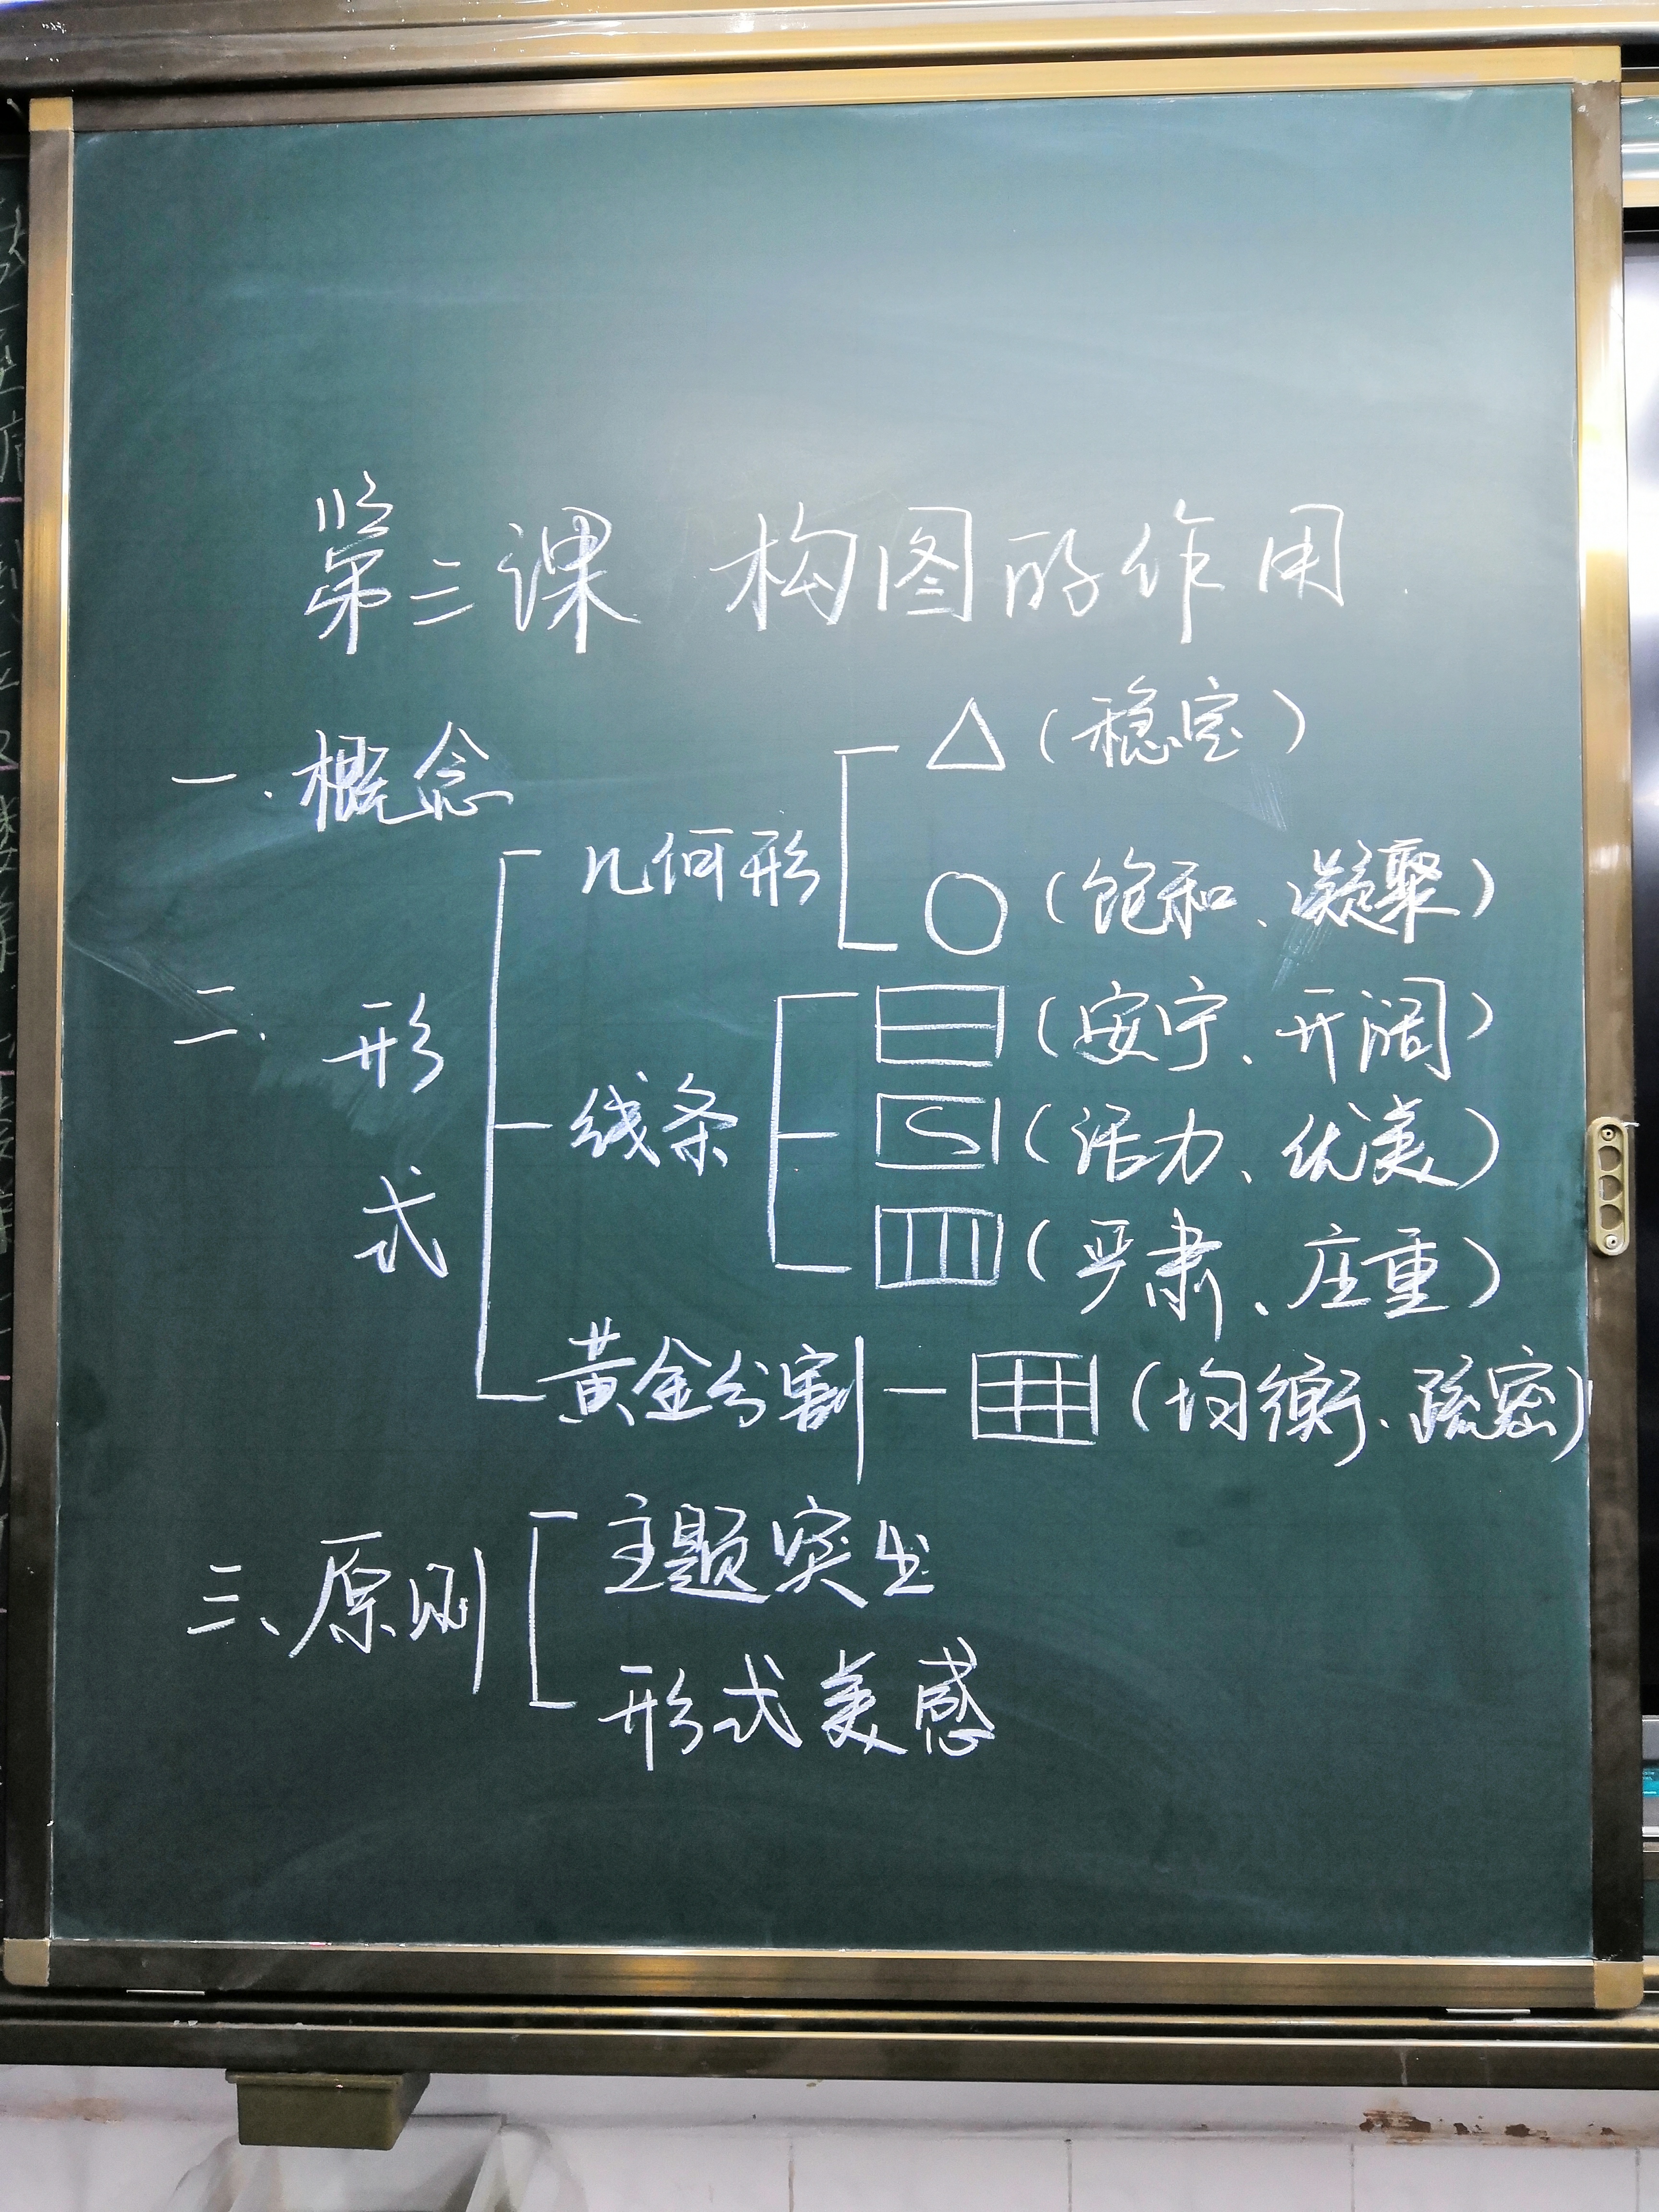 第二课 构图的作用
一.概念
二.形式
几何形
△(稳定)
○(饱和、凝聚)
线条
(安宁、开阔)
(活力、优美)
(严肃、庄重)
黄金分割
(均衡、疏密)
三、原则
主题突出
形式美感